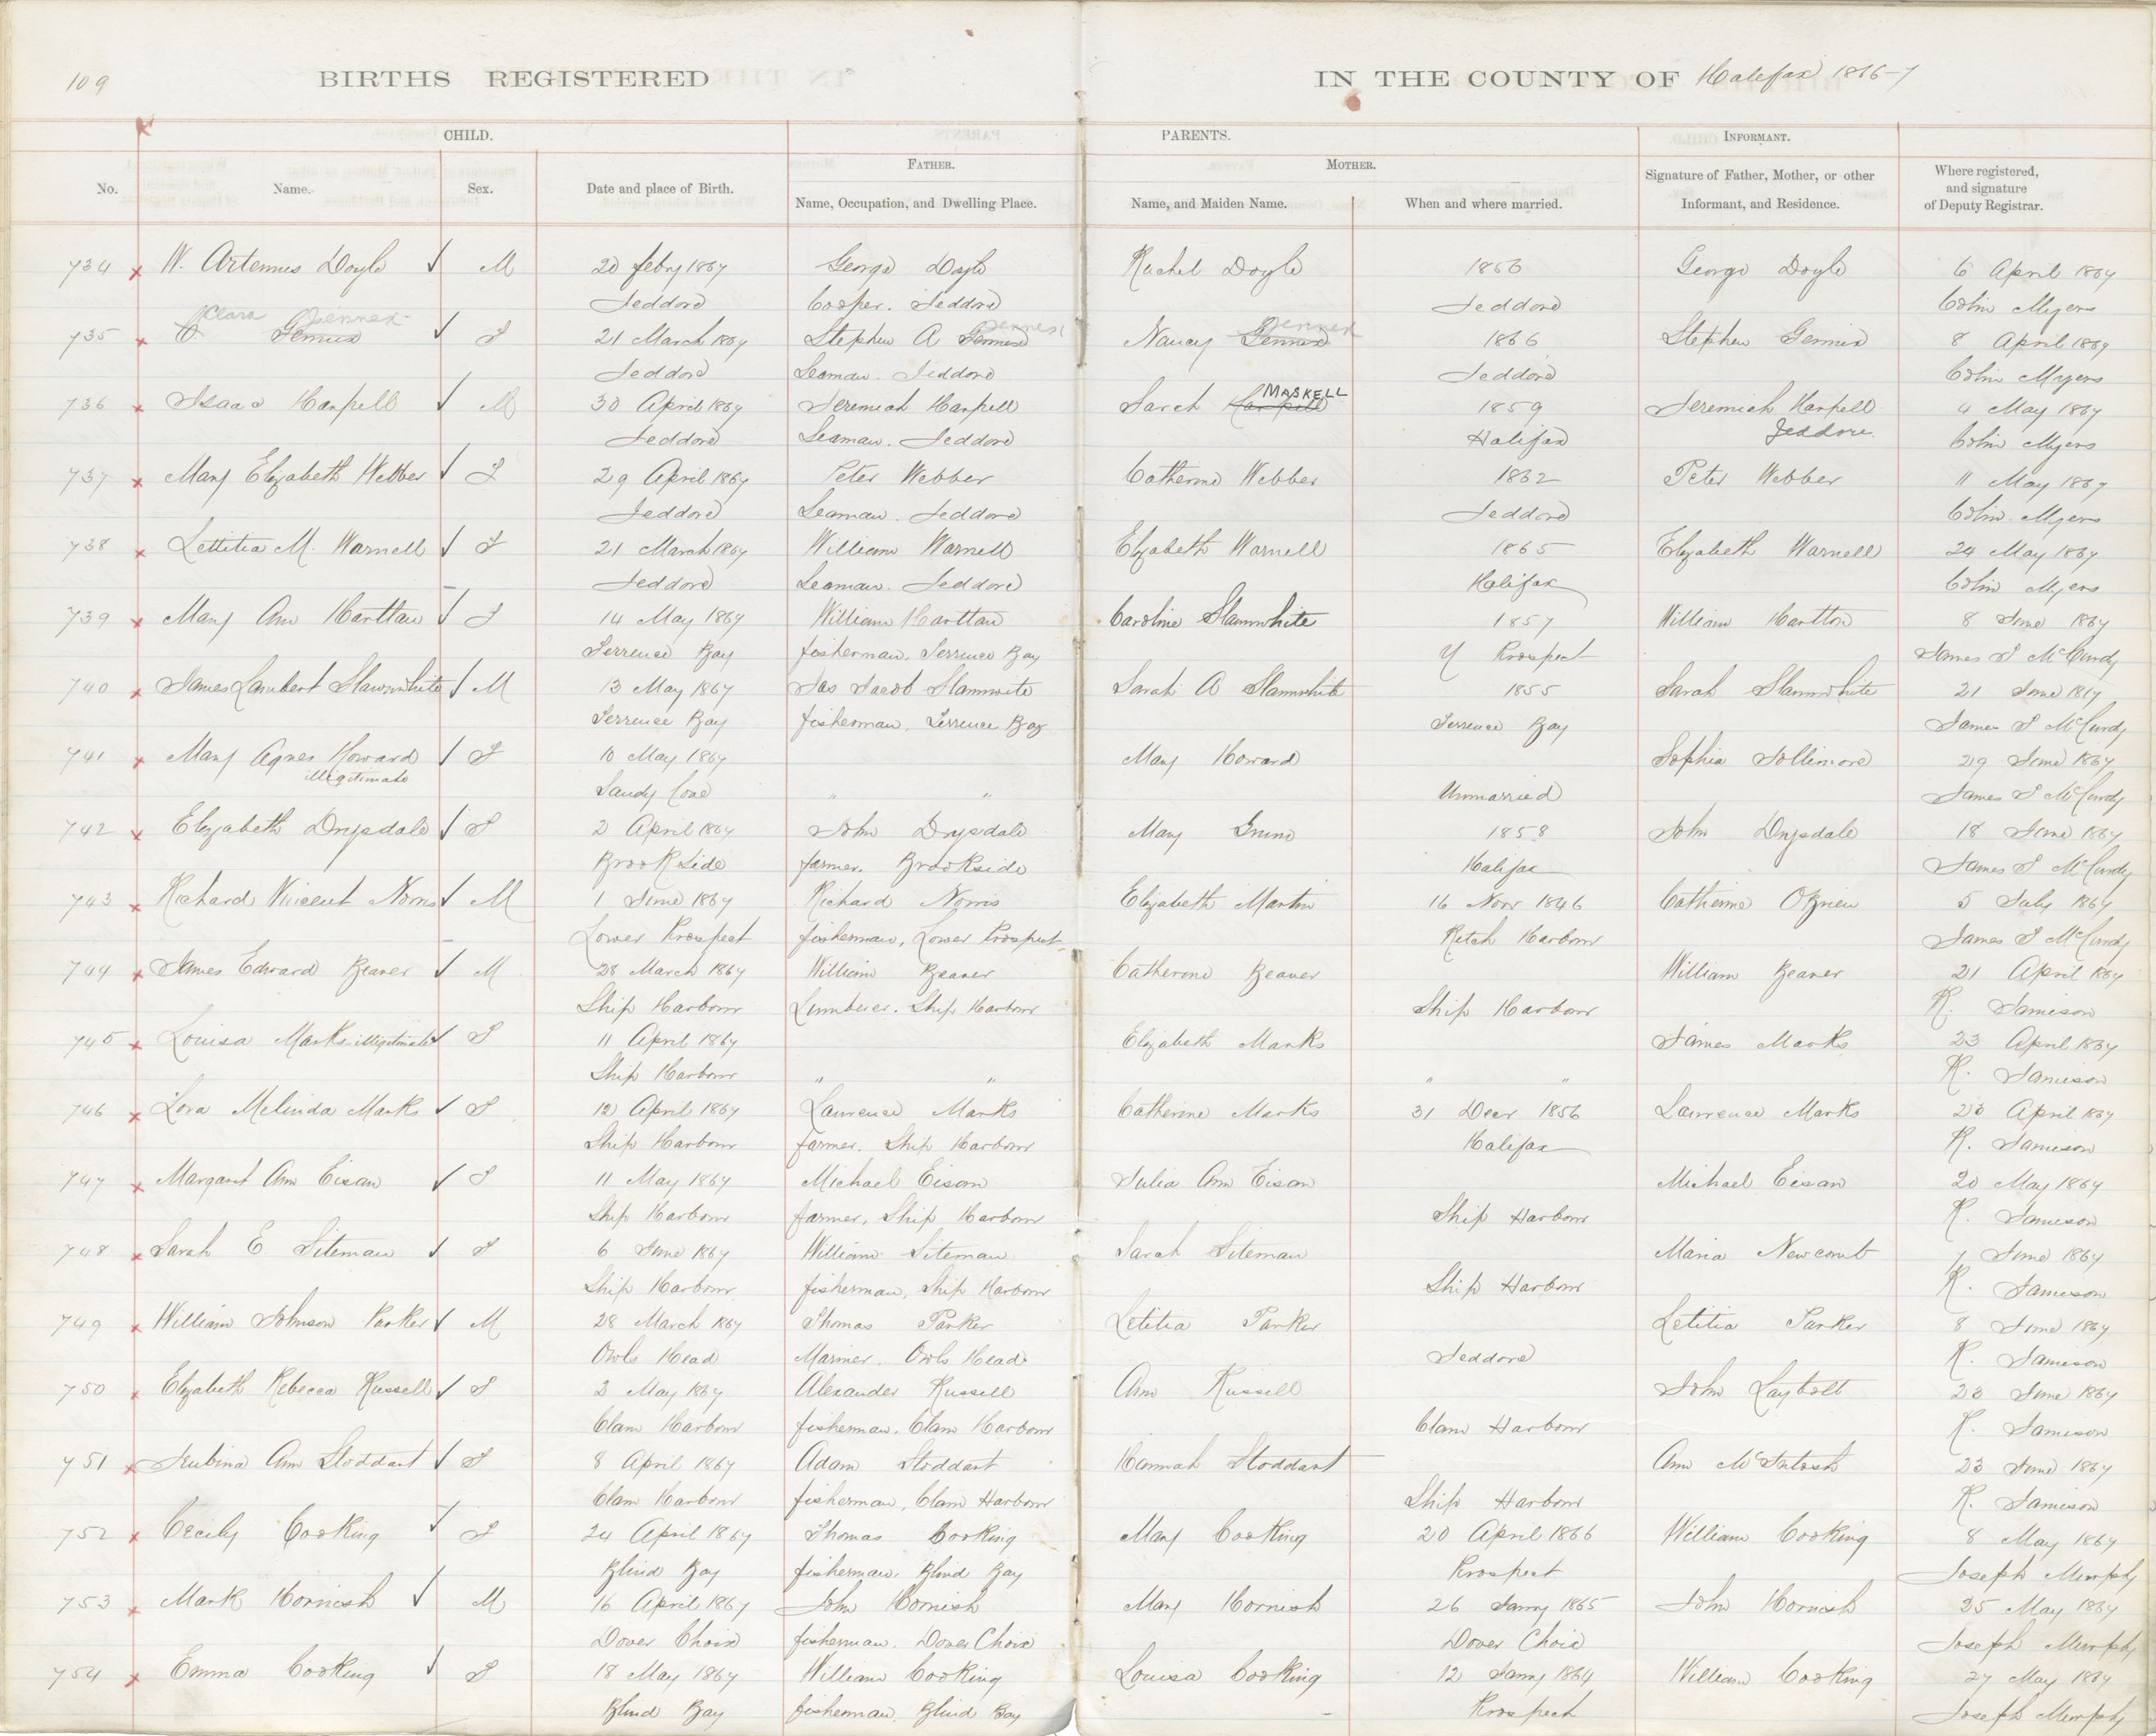 109
BIRTHS REGISTERED IN THE COUNTY OF Halifax 1866-7
CHILD. PARENTS. INFORMANT.
FATHER. MOTHER.
No. Name. Sex. Date and place of Birth. Name, Occupation, and Dwelling Place. Name, and Maiden Name. When and where married. Signature of Father, Mother, or other Informant, and Residence. Where registered, and signature of Deputy Registrar.
734 x W. Artemus Doyle ✓ M 20 Febry 1867 George Doyle Rachel Doyle 1856 George Doyle 6 April 1867
Jeddore Cooper. Jeddore Jeddore Colin Myers
Clara Jennex Jennex Jennex
735 x C. Gennix ✓ F 21 March 1867 Stephen A Gennex Nancy Gennex 1866 Stephen Gennix 8 April 1867
Jeddore Seaman. Jeddore Jeddore Colin Myers
MASKELL
736 x Isaac Harpell ✓ M 30 April 1867 Jeremiah Harpell Sarah Harpell 1859 Jeremiah Harpell 4 May 1867
Jeddore Seaman. Jeddore Halifax Jeddore. Colin Myers
737 x Mary Elizabeth Webber ✓ F 29 April 1867 Peter Webber Catherine Webber 1862 Peter Webber 11 May 1867
Jeddore Seaman. Jeddore Jeddore Colin Myers
738 x Lettitia M. Warnell ✓ F 21 March 1867 William Warnell Elizabeth Warnell 1865 Elizabeth Warnell 24 May 1867
Jeddore Seaman. Jeddore Halifax Colin Myers
739 x Mary Ann Harttau ✓ F 14 May 1867 William Harttau Caroline Slaunwhite 1857 William Hartton 8 June 1867
Terrence Bay fisherman, Terrence Bay U Prospect James S McCurdy
740 x James Lambert Slawnwhite ✓ M 13 May 1867 Jas Jacob Slaunwite Sarah A Slaunwhite 1855 Sarah Slaunwhite 21 June 1867
Terrence Bay fisherman, Terrence Bay Terrence Bay James S McCurdy
741 x Mary Agnes Howard ✓ F 10 May 1867 Mary Howard Sophia Jollimore 29 June 1867
illegitimate
Sandy Cove " " Unmarried James S McCurdy
742 x Elizabeth Drysdale ✓ F 2 April 1867 John Drysdale Mary 1858 John Drysdale 18 June 1867
Brookside farmer. Brookside Halifax James S McCurdy
743 x Richard Vincent Norris ✓ M 1 June 1867 Richard Norris Elizabeth Martin 16 Novr 1846 Catherine OBrien 5 July 1867
Lower Prospect fisherman, Lower Prospect Ketch Harbour James S McCurdy
744 x James Edward Beaver ✓ M 28 March 1867 William Beaver Catherine Beaver William Beaver 21 April 1867
Ship Harbour Lumberer. Ship Harbour Ship Harbour R. Jamieson
745 x Louisa Marks illegitimate ✓ F 11 April 1867 Elizabeth Marks James Marks 23 April 1867
Ship Harbour " " " " R. Jamieson
746 x Lora Melinda Marks ✓ F 12 April 1867 Laurence Marks Catherine Marks 31 Decr 1856 Lawrence Marks 23 April 1867
Ship Harbour farmer. Ship Harbour Halifax R. Jamieson
747 x Margaret Ann Eisan ✓ F 11 May 1867 Michael Eisan Julia Ann Eisan Michael Eisan 20 May 1867
Ship Harbour farmer, Ship Harbour Ship Harbour R. Jamieson
748 x Sarah E Siteman ✓ F 6 June 1867 William Siteman Sarah Siteman Maria Newcomb 7 June 1867
Ship Harbour fisherman, Ship Harbour Ship Harbour R. Jamieson
749 x William Johnson Parker ✓ M 28 March 1867 Thomas Parker Letitia Parker Letitia Parker 8 June 1867
Owls Head Mariner. Owls Head Jeddore R. Jamieson
750 x Elizabeth Rebecca Russell ✓ F 2 May 1867 Alexander Russell Ann Russell John Laybolt 23 June 1867
Clam Harbour fisherman. Clam Harbour Clam Harbour R. Jamieson
751 x Ann Stoddart ✓ F 8 April 1867 Adam Stoddart Hannah Stoddart Ann McIntosh 23 June 1867
Clam Harbour fisherman, Clam Harbour Ship Harbour R. Jamieson
752 x Cecily Cooking ✓ F 24 April 1867 Thomas Cooking Mary Cooking 20 April 1866 William Cooking 8 May 1867
Blind Bay fisherman, Blind Bay Prospect Joseph Murphy
753 x Mark Hornish ✓ M 16 April 1867 John Hornish Mary Hornish 26 Janry 1865 John Hornish 25 May 1867
Dover Choix fisherman. Dover Choix Dover Choix Joseph Murphy
754 x Emma Cooking ✓ F 18 May 1867 William Cooking Louisa Cooking 12 Janry 1864 William Cooking 27 May 1867
Blind Bay fisherman. Blind Bay Prospect Joseph Murphy